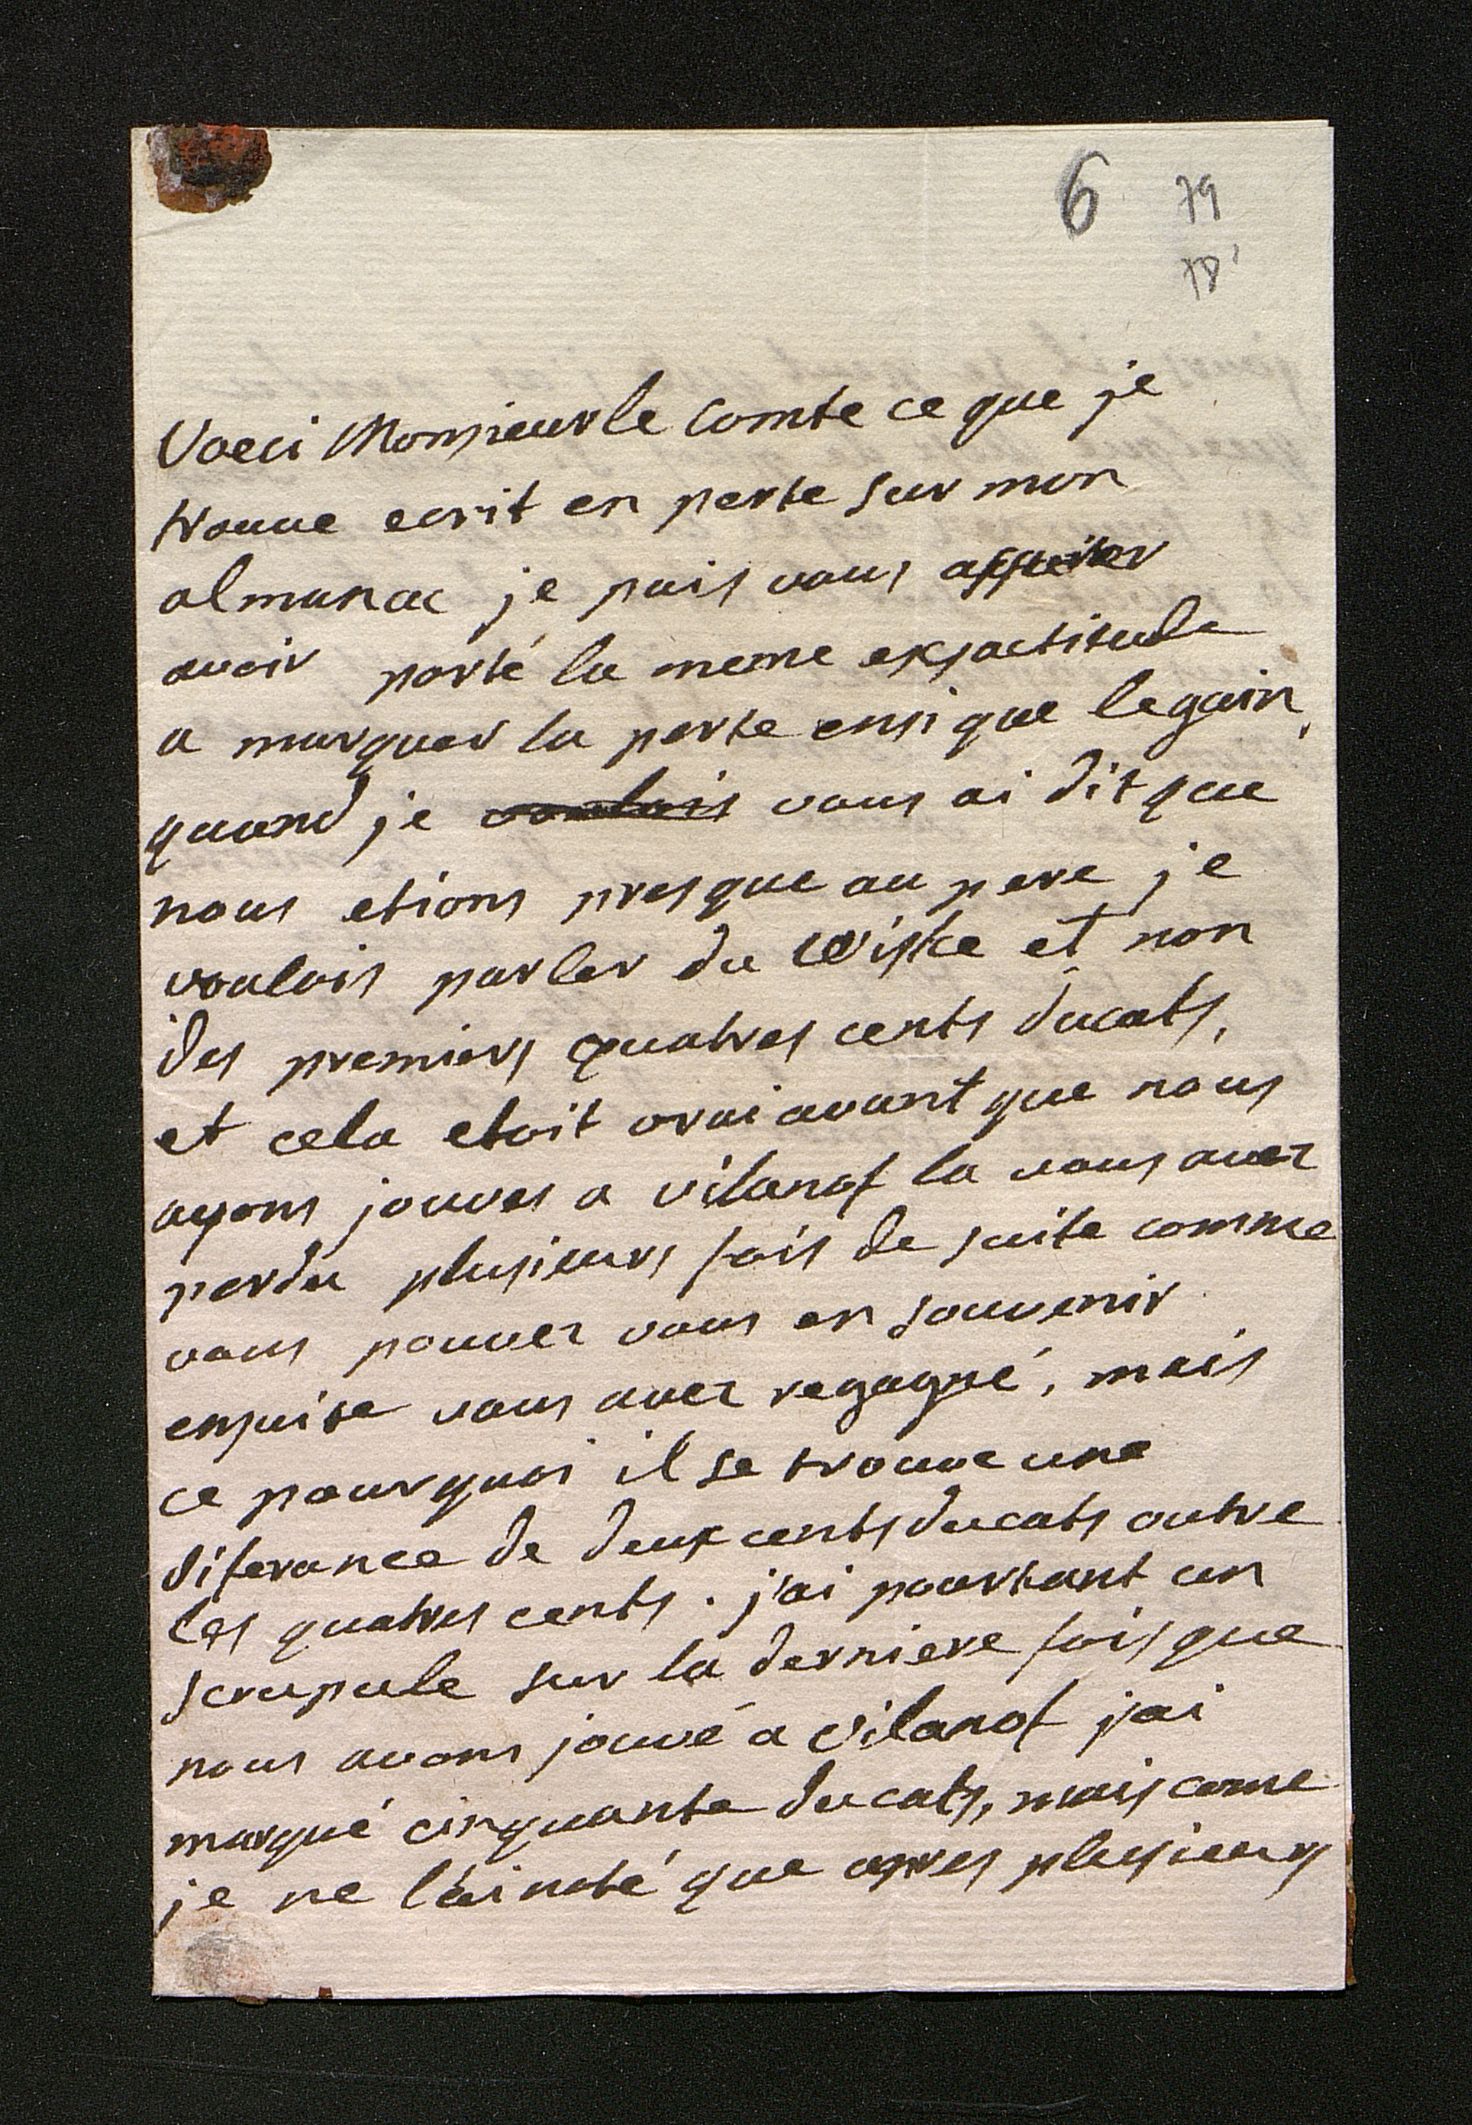 6 79
78'
Voeci Monsieur le Comte ce que je
trouve ecrit en perte sur mon
almanac je puis vous assurer
avoir porté la meme exsactitude
a marquer la perte ensi que le gain,
quand je voulois vous ai dit que
nous etions presque au pere je
voulois parler du Wiske et non
des premiers quatres cents ducats,
et cela etoit vrai avant que nous
ayons jouves a vilanof la vous avez
perdu plusieurs fois de suite comme
vous pouvez vous en souvenir
ensuite vous avez regagné, mais
ce pourquoi il se trouve une
diferance de deux cents ducats outre
les quatres cents. j'ai pourtant un
scrupule sur la derniere fois que
nous avons jouvé a vilanof j'ai
marqué cinquante ducats, mais come
je ne l'ai noté que apres plusieurs